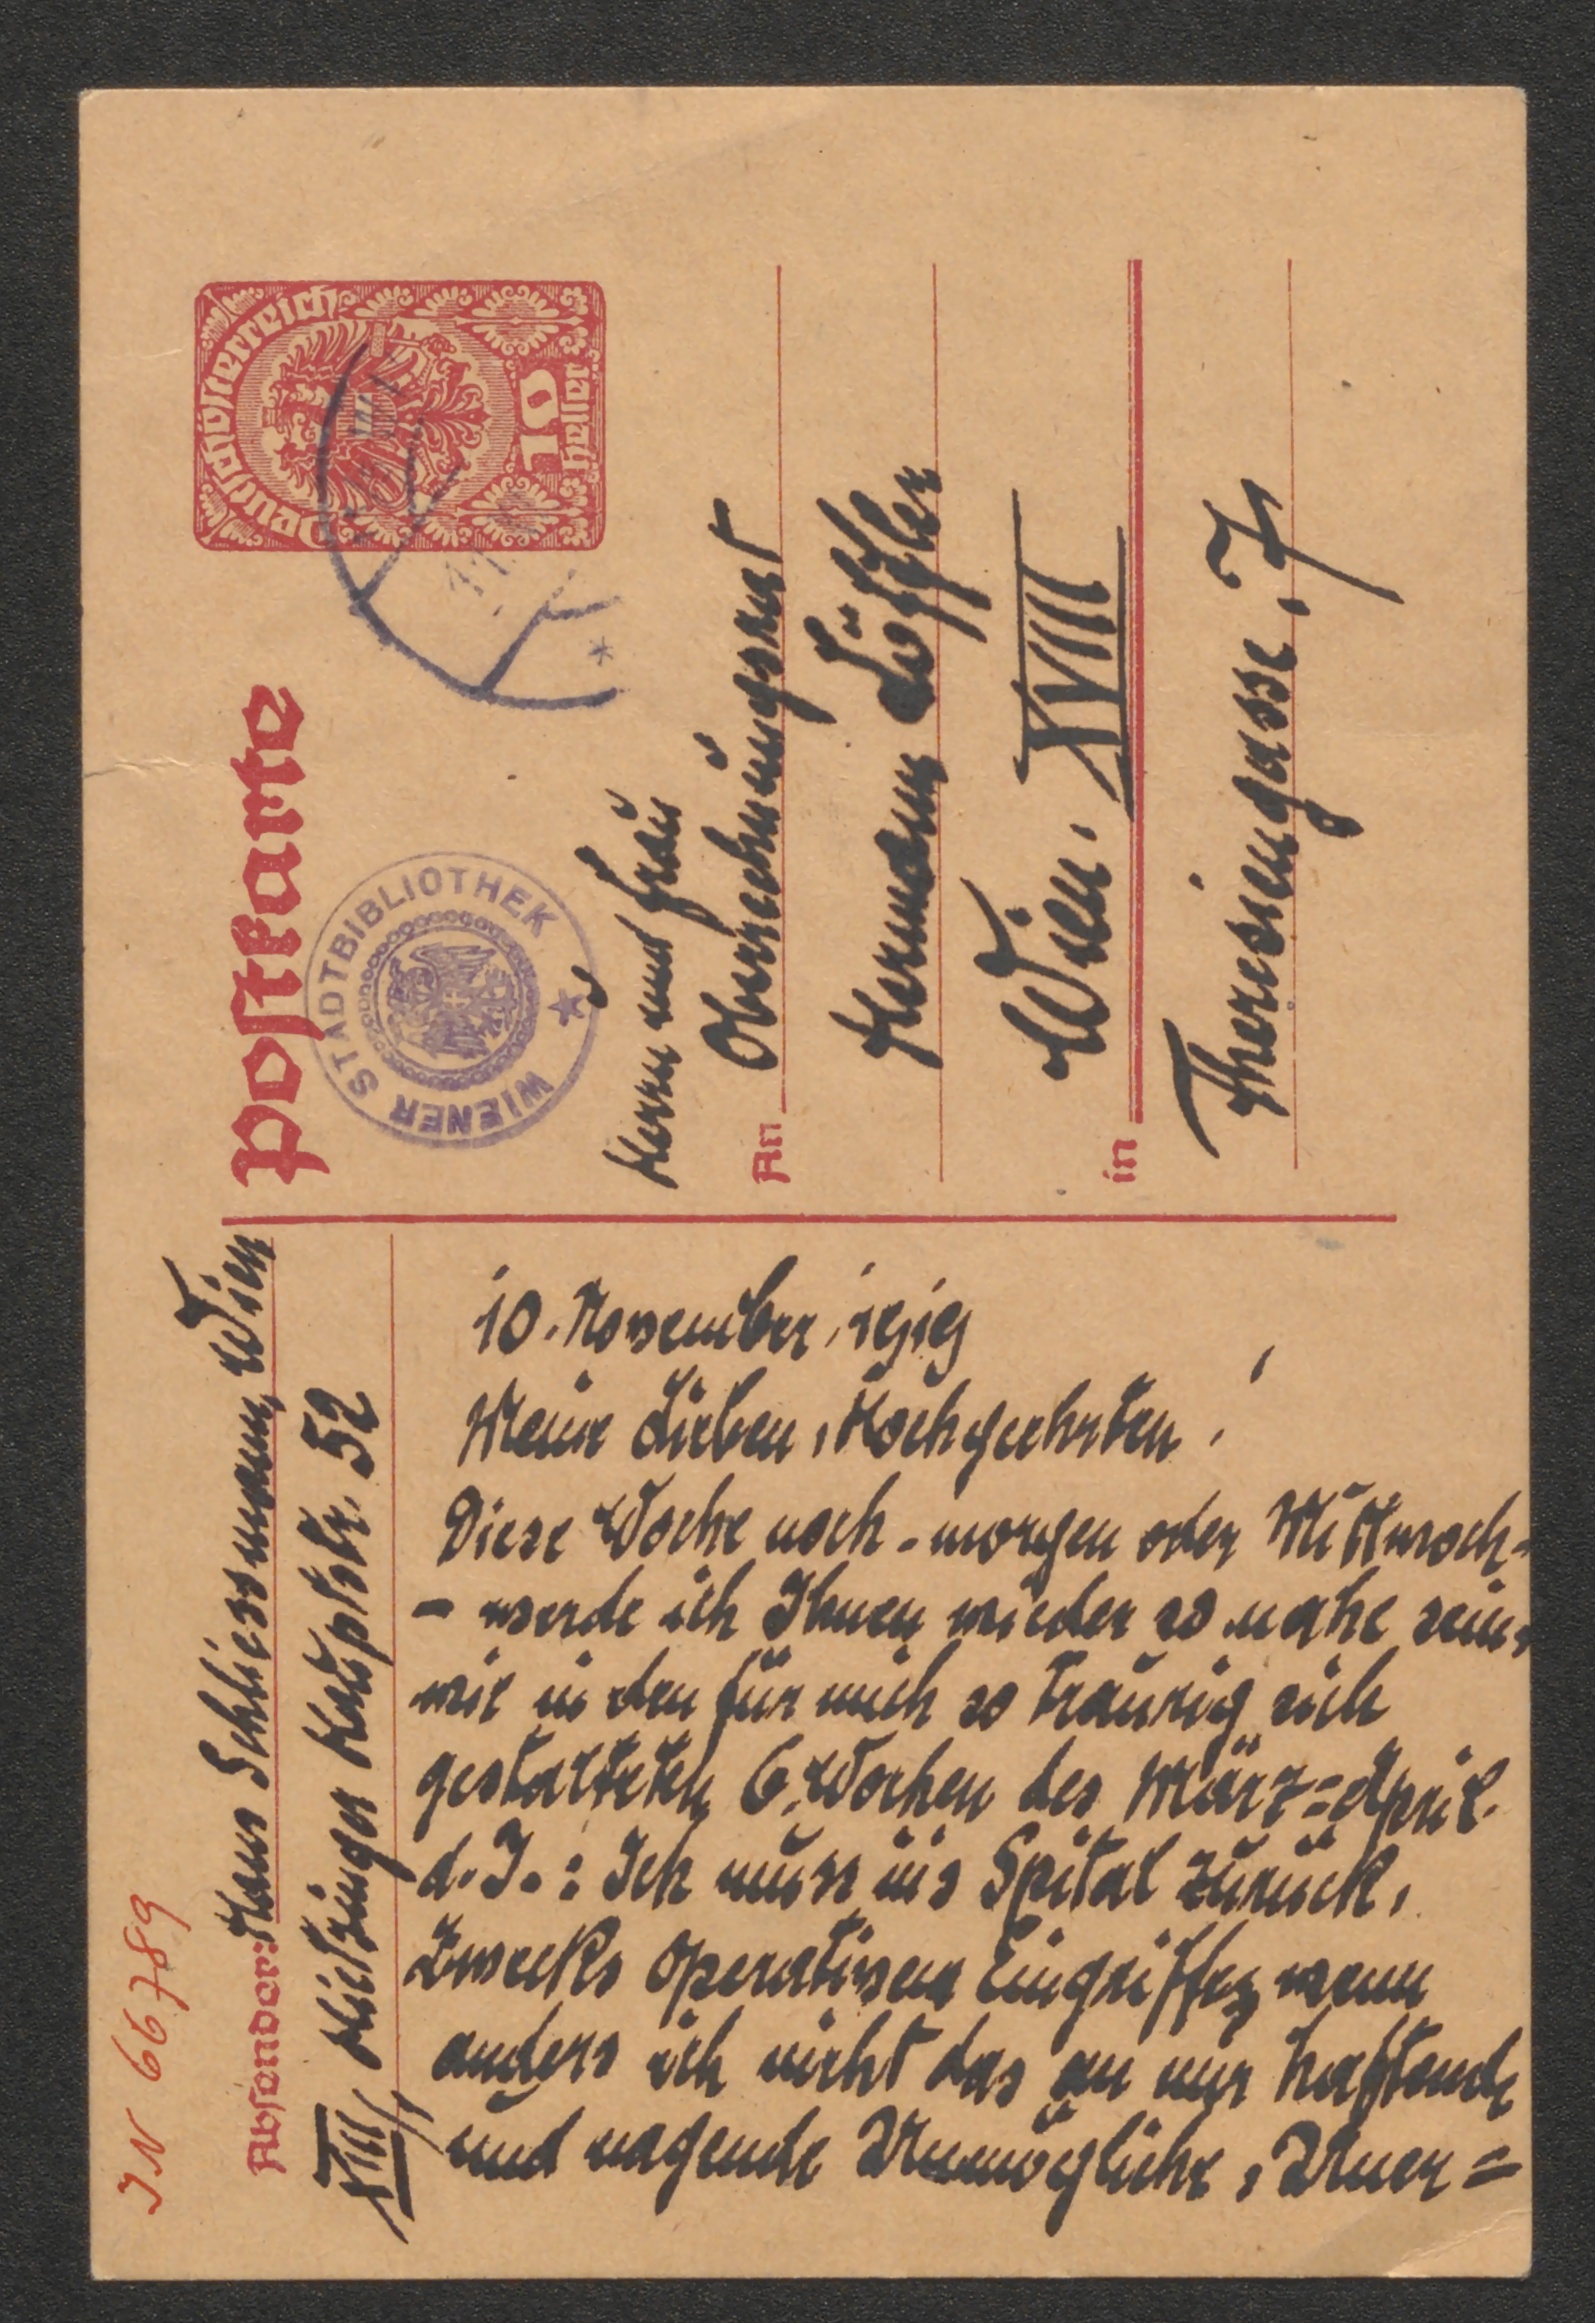 J.N 66789
Absender: Hans Schliessmann, Wien
XIII, Hietzinger Hauptstr. 52
10. November 1919
Meine Lieben, Hochgeehrten!
Diese Woche noch - morgen oder Mittwoch -
- werde ich Ihnen wieder so nahe sein,
wie in den für mich so traurig sich
gestalteten 6 Wochen des März=April
d. J.: Ich muss in's Spital zurück,
zwecks operativen Eingriffes, wenn
anders ich nicht das an mir haftende
und nagende Unmögliche, Uner=
Postkarte
Deutschösterreich
10 Heller
WIENER STADTBIBLIOTHEK
Herrn und Frau
Oberrechnungsrat
An
Hermann Löffler
Wien. XVIII
in
Theresiengasse. 7